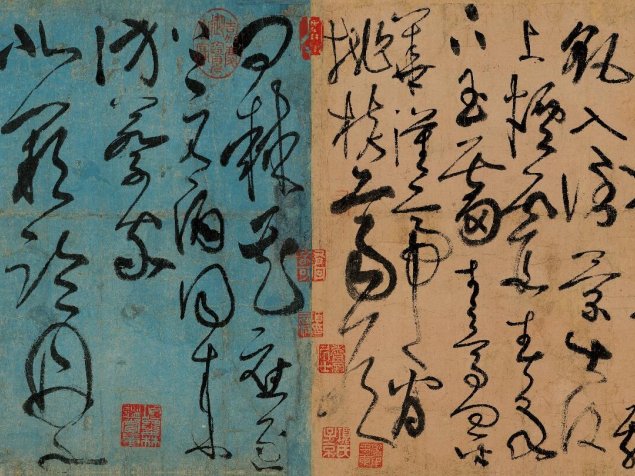 飖入倒景出沒
上煙霞春泉
下玉霤青鳥向金
華漢帝看
桃核齊侯
問棘花應逐
上元酒同來
訪蔡家
北闕臨丹水